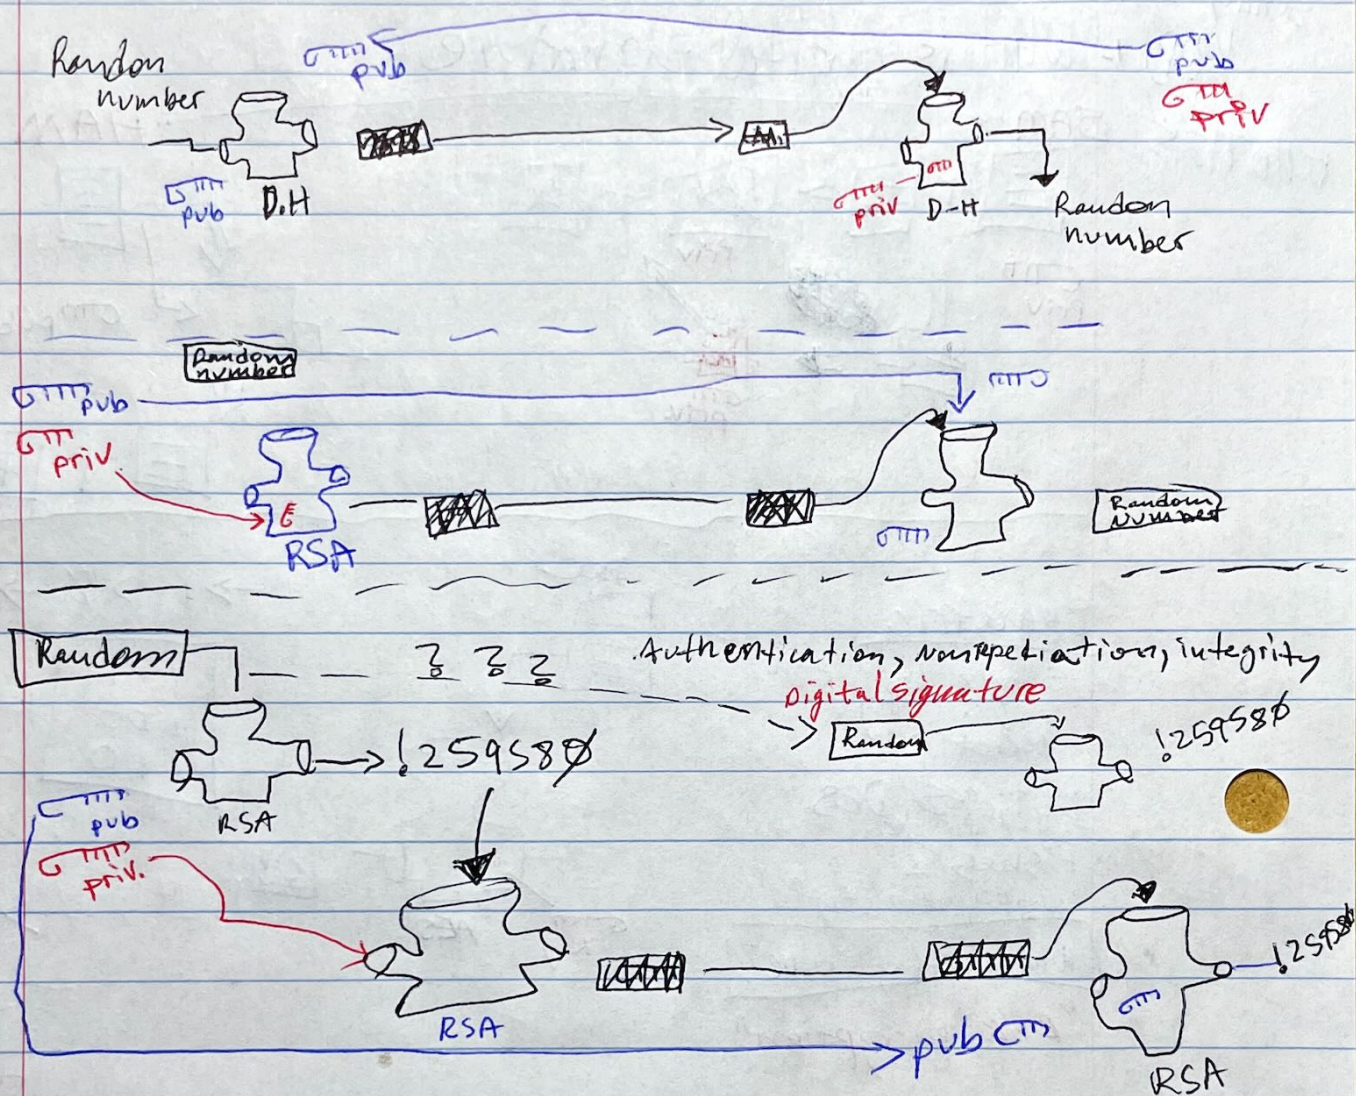 Random
number
pub
pub
priv
pub
D.H
priv
D-H
Random
number
Random
number
pub
priv.
E
RSA
Random
Number
Random
? ? ?
.Authentication, nonrepediation, integrity
Digital signature
Random
!259580
!259580
RSA
pub
priv.
RSA
!259580
pub
RSA